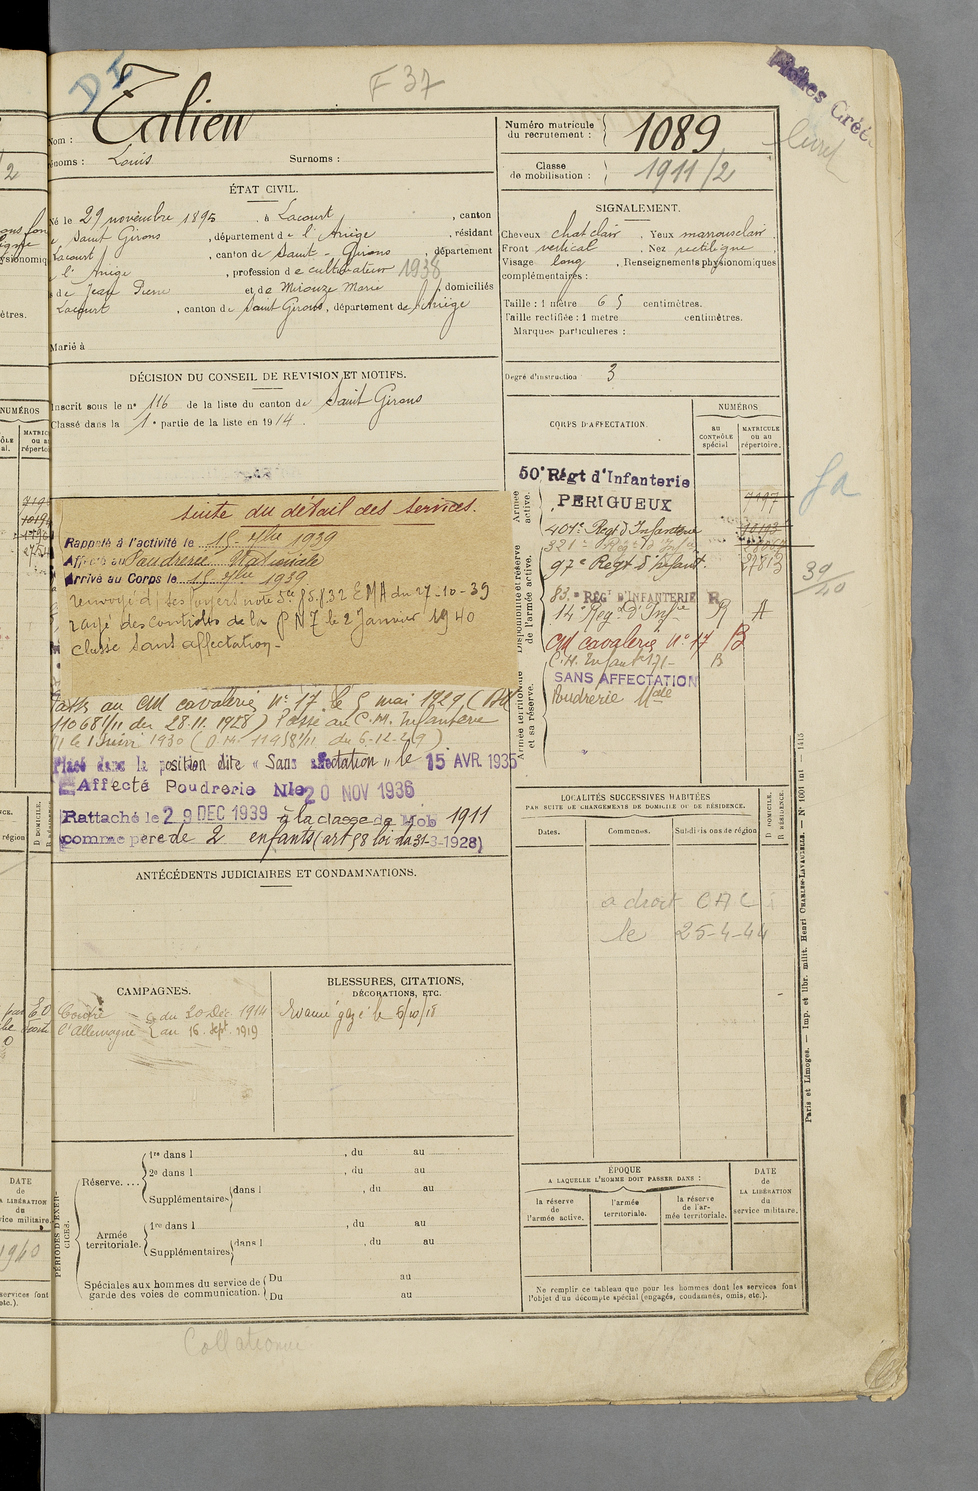 DI
F 37
Fiches
Nom : Talieu
Prénoms : Louis
Surnoms :
Numéro matricule
du recrutement :
1089
Classe
de mobilisation :
1911/2
livret
ÉTAT CIVIL.
Né le 29 novembre 1895, à Lacourt, canton
de Saint Girons, département de l'Ariège, résidant
Lacourt, canton de Saint-Girons, département
l'Ariège, profession de cultivateur 1938
de Jean Pierre et de Mirouze Marie, domiciliés
Lacourt, canton de Saint Girons, département de l'Ariège
Marié à
SIGNALEMENT.
Cheveux chat clair. Yeux marrons clair.
Front vertical. Nez rectiligne
Visage long. Renseignements physionomiques
complémentaires :
Taille : 1 mètre 65 centimètres.
Taille rectifiée : 1 mètre centimètres.
Marques particulières :
Degré d'instruction : 3
DÉCISION DU CONSEIL DE REVISION ET MOTIFS.
Inscrit sous le n° 116 de la liste du canton de Saint Girons
Classé dans la 1e partie de la liste en 1914
CORPS D'AFFECTATION.
NUMÉROS
au
CONTRÔLE
spécial
MATRICULE
ou au
répertoire.
Armée
active.
50e Régt d'Infanterie
PERIGUEUX
7197
Disponibilité et réserve
de l'armée active.
401e Regt d'Infanterie
321e
97e Regt d'Infant.
27813
83e RÉGt D'INFANTERIE R
14e Reg. D'Infie R A
CM cavalerie n° 17 B
C.M. Infant 171 - B
Armée territoriale
et sa réserve.
SANS AFFECTATION
Poudrerie Nale
39/40
suite du détail des services.
Rappelé à l'activité le 15 7bre 1939
Affecté au Poudrerie Nationale
Arrivé au Corps le 15 7bre 1939
renvoyé ds ses foyers note 5ce 85.132 EMA du 27-10-39
rayé des controles de la PN7 le 2 Janvier 1940
classé sans affectation-
Passé au CM cavalerie n° 17 le 5 mai 1929 (DM
11068 1/11 du 28.11.1928) Passé au C.M. Infanterie
le 1 1930 (D.M. 11958 1/11 du 6-12-29)
Placé dans la position dite « Sans affectation » le 15 AVR. 1935
Affecté Poudrerie Nle 20 NOV 1936
Rattaché le 29 DEC 1939 à la classe de Mob 1911
comme père de 2 enfants (art 58 loi du 31-3-1928)
LOCALITÉS SUCCESSIVES HABITÉES
PAR SUITE DE CHANGEMENTS DE DOMICILE OU DE RÉSIDENCE.
Dates.
Communes.
Subdivisions de région
D DOMICILE.
R RÉSIDENCE.
a droit CAC
le 25-4-44
ANTÉCÉDENTS JUDICIAIRES ET CONDAMNATIONS.
CAMPAGNES.
Contre du 20 Déc. 1914
l'Allemagne au 16 Sept 1919
BLESSURES, CITATIONS,
DÉCORATIONS, ETC.
Evacué gazé le 5/10/18
PÉRIODES D'EXERCICES.
Réserve....
1re dans l , du au
2e dans l , du au
Supplémentaires dans l , du au
Armée
territoriale.
1re dans l , du au
Supplémentaires dans l , du au
Spéciales aux hommes du service de
garde des voies de communication.
Du au
Du au
ÉPOQUE
A LAQUELLE L'HOMME DOIT PASSER DANS :
la réserve
de
l'armée active.
l'armée
territoriale.
la réserve
de l'ar-
mée territoriale.
DATE
de
LA LIBÉRATION
du
service militaire.
Ne remplir ce tableau que pour les hommes dont les services font
l'objet d'un décompte spécial (engagés, condamnés, omis, etc.).
Paris et Limoges. — Imp. et libr. milit. Henri CHARLES-LAVAUZELLE. — N° 1001 int — 1415
Collationné
NUMÉROS
DATE
de
LA LIBÉRATION
du
service militaire.
1940